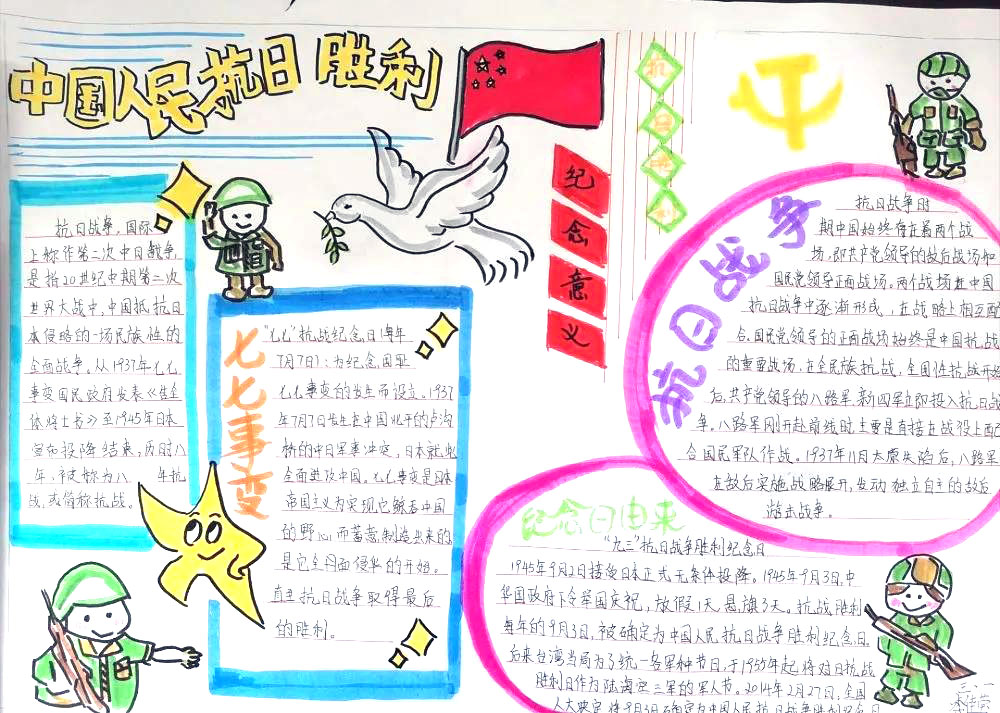 中国人民抗日胜利
抗日
利
纪念意义
抗日战争，国际
上称作第二次中日战争，
是指20世纪中期第二次
世界大战中，中国抵抗日
本侵略的一场民族性的
全面战争。从1937年七七
事变国民政府发表《告全
体将士书》至1945年日本
宣布投降结束，历时八
年，被称为八 年抗
战，或简称抗战。
七七事变
"七七"抗战纪念日：每年
7月7日：为纪念
七七事变的发生而设立。1937
年7月7日发生在中国北平的卢沟
桥的中日军事冲突，日本就此
全面进攻中国。七七事变是日本
帝国主义为实现它鲸吞中国
的野心而蓄意制造出来的
是它全面侵华的开始。
直至抗日战争取得最后
的胜利。
抗日战争
抗日战争时
期中国始终存在着两个战
场，即共产党领导的敌后战场和
国民党领导正面战场。两个战场在中国
抗日战争中逐渐形成，在战略上相互配
合。国民党领导的正面战场始终是中国抗战
的重要战场，在全民族抗战，全国性抗战开始
后，共产党领导的八路军新四军立即投入抗日战
争，八路军刚开赴前线时主要是直接在战役上配
合国民军队作战。1937年11月太原失陷后，八路军
在敌后实施战略展开，发动独立自主的敌后
游击战争。
纪念日由来
"九三"抗日战争胜利纪念日
1945年9月2日接受日本正式无条件投降。1945年9月3日，中
华国政府下令举国庆祝，放假1天，悬旗3天。抗战胜利
每年的9月3日，被确定为中国人民抗日战争胜利纪念日。
后来台湾当局为了统一各军种节日，于1955年起将对日抗战
胜利日作为陆海空三军的军人节。2014年2月27日，全国
人大决定将9月3日确定为中国人民抗日战争胜利纪念日
三.一